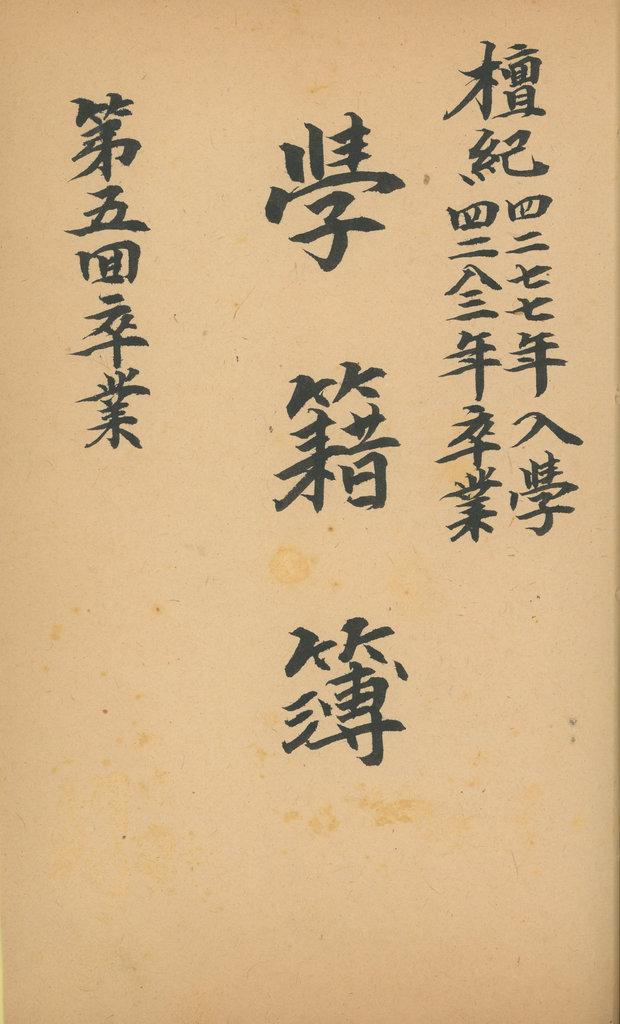 檀紀
四二七七年入學
四二八三年卒業
學籍簿
第五回卒業